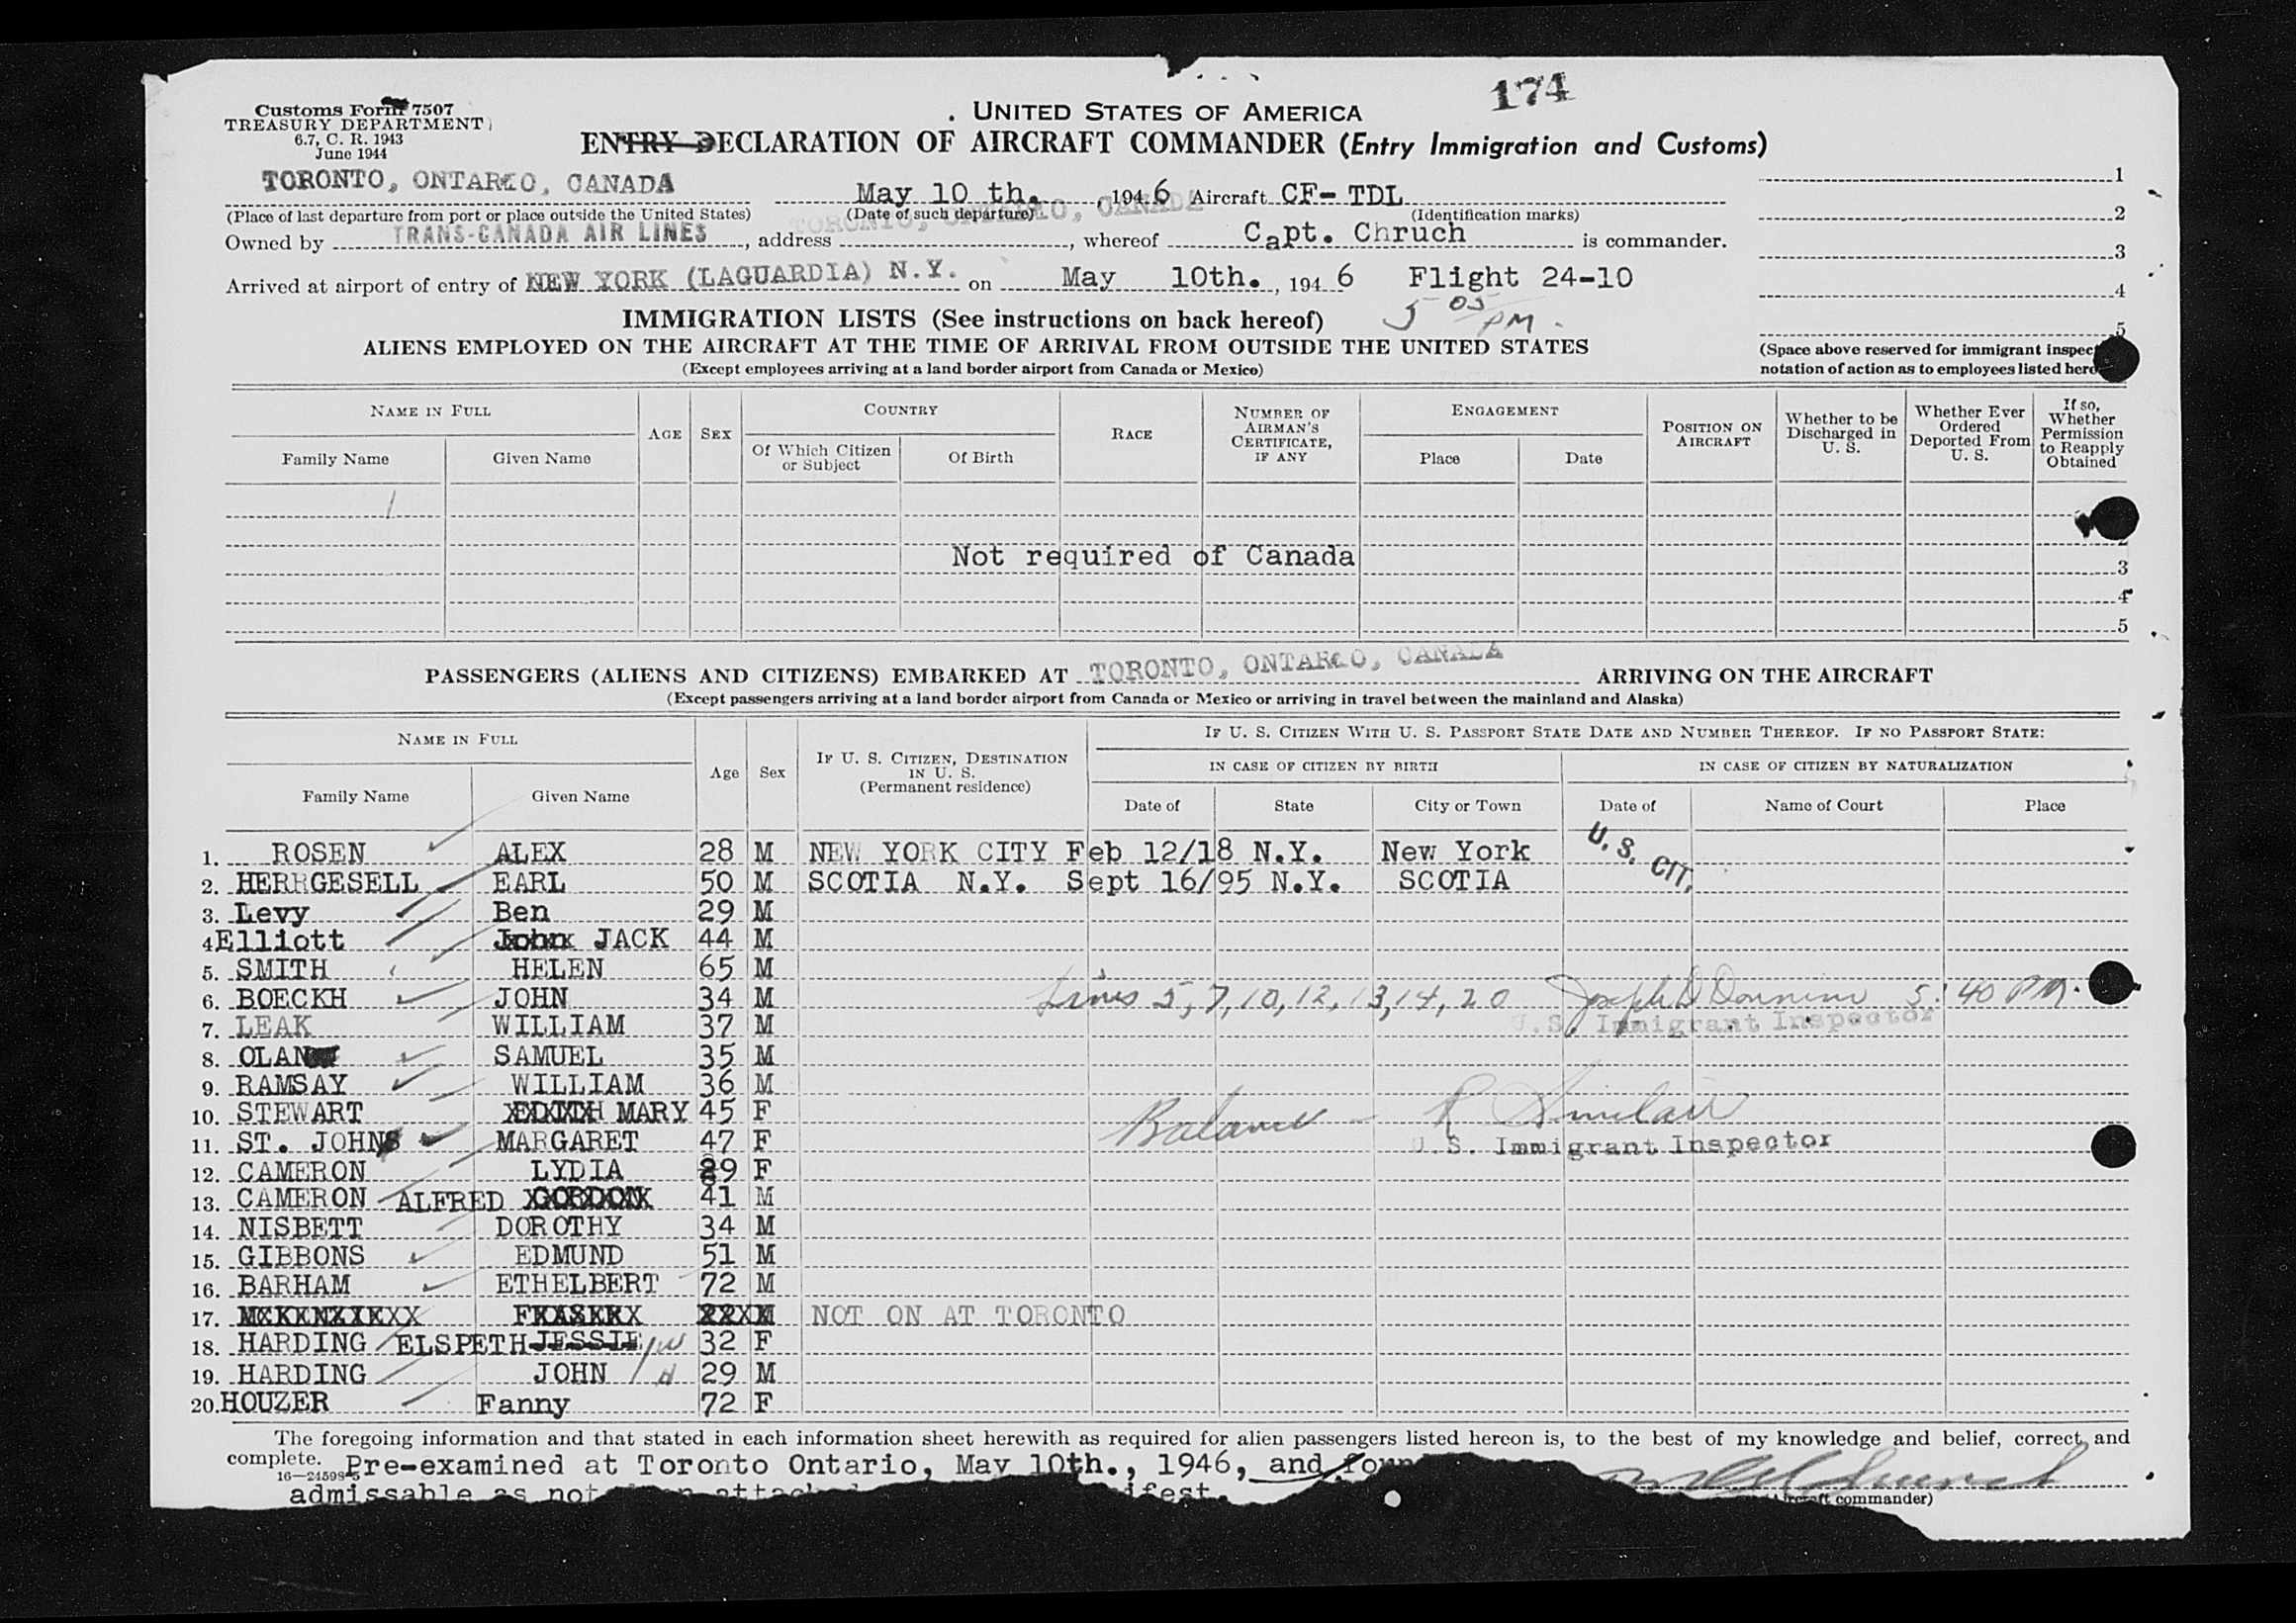 174
Customs Form 7507
TREASURY DEPARTMENT
6.7, C. R. 1943
June 1944
UNITED STATES OF AMERICA
ENTRY DECLARATION OF AIRCRAFT COMMANDER (Entry Immigration and Customs)
TORONTO, ONTARIO, CANADA May 10 th., 1946 Aircraft CF-TDL
(Place of last departure from port or place outside the United States) (Date of such departure) (Identification marks)
TORONTO, ONTARIO, CANADA
Owned by TRANS-CANADA AIR LINES, address , whereof Capt. Chruch is commander.
Arrived at airport of entry of NEW YORK (LAGUARDIA) N.Y. on May 10th., 1946 Flight 24-10
5 05 PM.
1
2
3
4
5
(Space above reserved for immigrant inspec
notation of action as to employees listed here
IMMIGRATION LISTS (See instructions on back hereof)
ALIENS EMPLOYED ON THE AIRCRAFT AT THE TIME OF ARRIVAL FROM OUTSIDE THE UNITED STATES
(Except employees arriving at a land border airport from Canada or Mexico)
NAME IN FULL AGE SEX COUNTRY RACE NUMBER OF AIRMAN'S CERTIFICATE, IF ANY ENGAGEMENT POSITION ON AIRCRAFT Whether to be Discharged in U. S. Whether Ever Ordered Deported From U. S. If so, Whether Permission to Reapply Obtained
Family Name Given Name Of Which Citizen or Subject Of Birth Place Date
Not required of Canada
3
4
5
PASSENGERS (ALIENS AND CITIZENS) EMBARKED AT TORONTO, ONTARIO, CANADA ARRIVING ON THE AIRCRAFT
(Except passengers arriving at a land border airport from Canada or Mexico or arriving in travel between the mainland and Alaska)
NAME IN FULL Age Sex IF U. S. CITIZEN, DESTINATION IN U. S. (Permanent residence) IF U. S. CITIZEN WITH U. S. PASSPORT STATE DATE AND NUMBER THEREOF. IF NO PASSPORT STATE:
IN CASE OF CITIZEN BY BIRTH IN CASE OF CITIZEN BY NATURALIZATION
Family Name Given Name Date of State City or Town Date of Name of Court Place
1. ROSEN ALEX 28 M NEW YORK CITY Feb 12/18 N.Y. New York U.S. CIT.
2. HERRGESELL EARL 50 M SCOTIA N.Y. Sept 16/95 N.Y. SCOTIA
3. Levy Ben 29 M
4 Elliott John JACK 44 M
5. SMITH HELEN 65 M
6. BOECKH JOHN 34 M Lines 5, 7, 10, 12, 13, 14, 20 Joseph D 5:40 PM.
7. LEAK WILLIAM 37 M U.S. Immigrant Inspector
8. OLAN SAMUEL 35 M
9. RAMSAY WILLIAM 36 M
10. STEWART EDITH MARY 45 F Balance - R Sinclair
11. ST. JOHNS MARGARET 47 F U.S. Immigrant Inspector
12. CAMERON LYDIA 39 F
13. CAMERON ALFRED GORDON 41 M
14. NISBETT DOROTHY 34 M
15. GIBBONS EDMUND 51 M
16. BARHAM ETHELBERT 72 M
17. MCKENZIEXX FRASERX 22XM NOT ON AT TORONTO
18. HARDING ELSPETH JESSIE W 32 F
19. HARDING JOHN H 29 M
20. HOUZER Fanny 72 F
The foregoing information and that stated in each information sheet herewith as required for alien passengers listed hereon is, to the best of my knowledge and belief, correct and
complete. Pre-examined at Toronto Ontario, May 10th., 1946, and foun
16—24598-5
admissable as not
ifest.
ircraft commander)